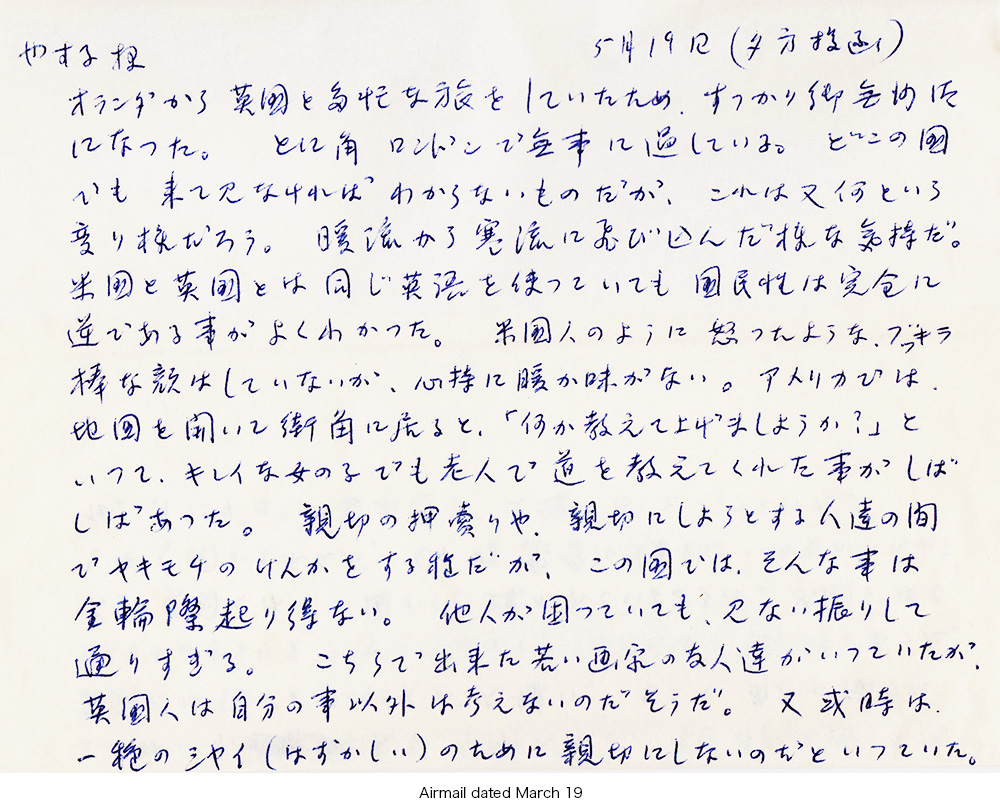 やする様
5月19日(夕方投函)
オランダから英国と多忙な旅をしていたため、すっかり御無沙汰
になった。 とに角ロンドンで無事に過している。 どこの国
でも来て見なければわからないものだが、これは又何という
変り様だろう。 暖流から寒流に飛び込んだ様な気持だ。
米国と英国とは同じ英語を使っていても国民性は完全に
逆である事がよくわかった。 米国人のように怒ったような、ブッキラ
棒な顔はしていないが、心持に暖か味がない。アメリカでは、
地図を開いて街角に居ると、「何か教えて上げましようか?」と
いって、キレイな女の子でも老人で道を教えてくれた事がしば
しばあった。 親切の押賣りや、親切にしようとする人達の間
でヤキモチのけんかをする程だが、この国では、そんな事は
金輪際起り得ない。 他人が困っていても、見ない振りして
通りすぎる。 こちらで出来た若い画家の友人達がいっていたが、
英国人は自分の事以外は考えないのだそうだ。 又或時は、
一種のシヤイ(はずかしい)のために親切にしないのだといっていた。
Airmail dated March 19